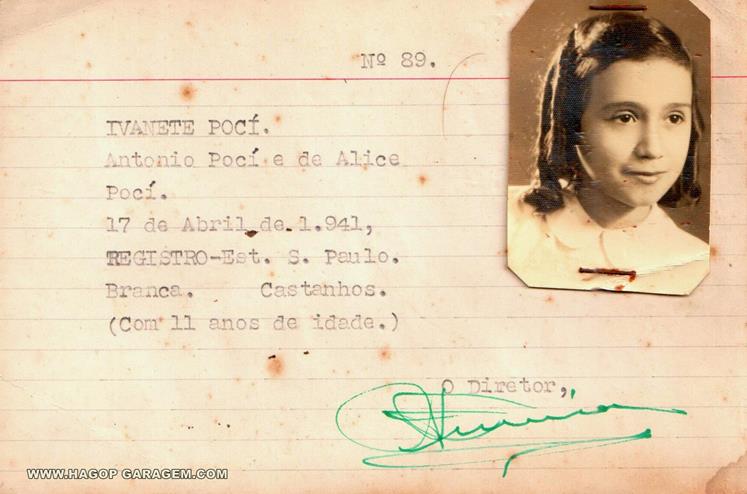 Nº 89.
IVANETE POCÍ.
Antonio Pocí e de Alice
Pocí.
17 de Abril de 1.941,
REGISTRO-Est. S. Paulo.
Branca. Castanhos.
(Com 11 anos de idade.)
O Diretor,
WWW.HAGOP GARAGEM.COM